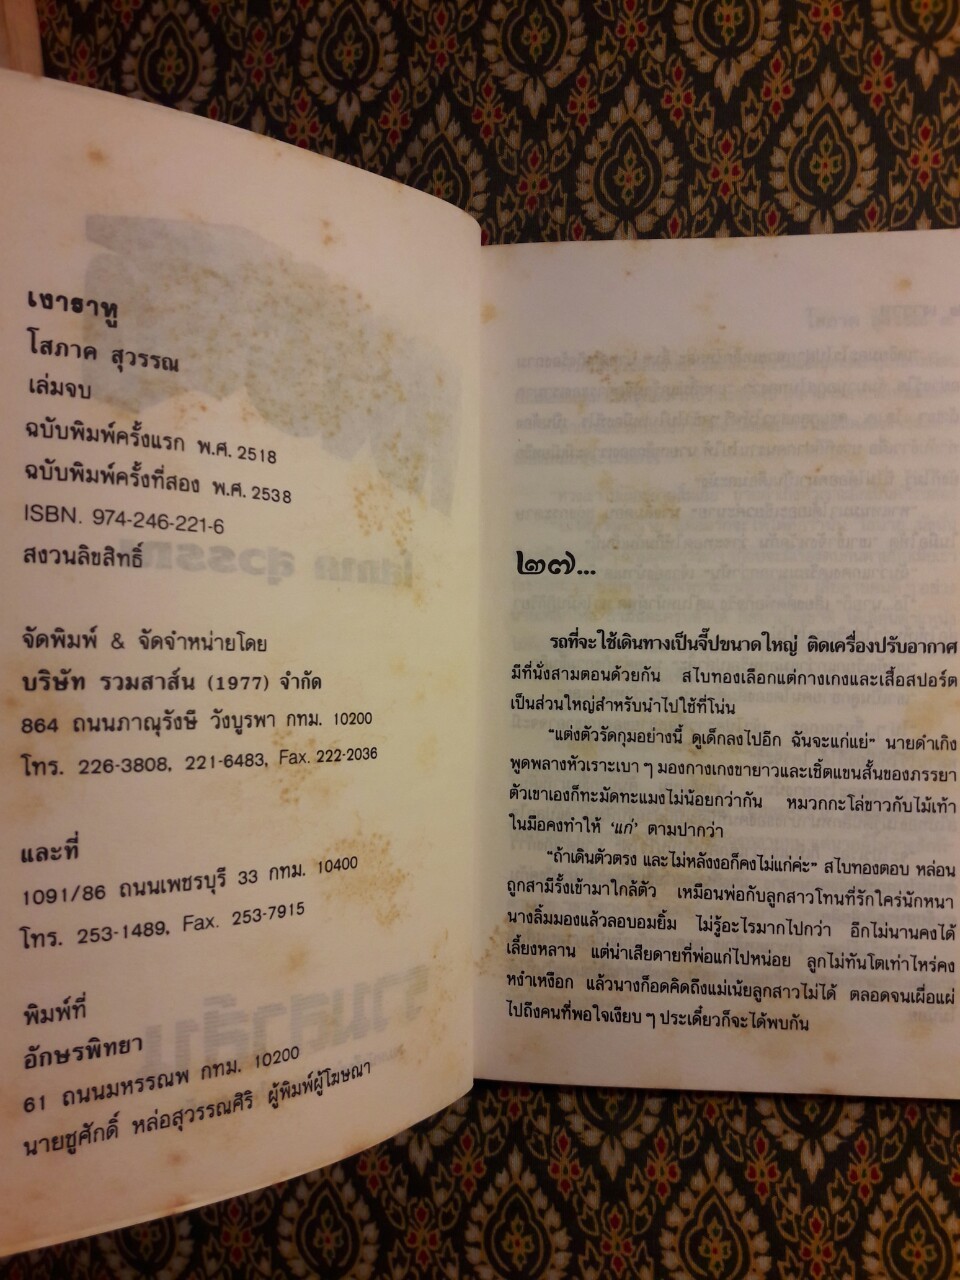 เงาธาทู
โสภาค สุวรรณ
เล่มจบ
ฉบับพิมพ์ครั้งแรก พ.ศ. 2518
ฉบับพิมพ์ครั้งที่สอง พ.ศ. 2538
ISBN. 974-246-221-6
สงวนลิขสิทธิ์
จัดพิมพ์ & จัดจำหน่ายโดย
บริษัท รวมสาส์น (1977) จำกัด
864 ถนนภาณุรังษี วังบูรพา กทม. 10200
โทร. 226-3808, 221-6483, Fax. 222-2036
และที่
1091/86 ถนนเพชรบุรี 33 กทม. 10400
โทร. 253-1489, Fax. 253-7915
พิมพ์ที่
อักษรพิทยา
61 ถนนมหรรณพ กทม. 10200
นายชูศักดิ์ หล่อสุวรรณศิริ ผู้พิมพ์ผู้โฆษณา
๒๗...
รถที่จะใช้เดินทางเป็นจี๊ปขนาดใหญ่ ติดเครื่องปรับอากาศ
มีที่นั่งสามตอนด้วยกัน สไบทองเลือกแต่กางเกงและเสื้อสปอร์ต
เป็นส่วนใหญ่สำหรับนำไปใช้ที่โน่น
"แต่งตัวรัดกุมอย่างนี้ ดูเด็กลงไปอีก ฉันจะแก่แย่" นายดำเกิง
พูดพลางหัวเราะเบา ๆ มองกางเกงขายาวและเชิ้ตแขนสั้นของภรรยา
ตัวเขาเองก็ทะมัดทะแมงไม่น้อยกว่ากัน หมวกกะโล่ขาวกับไม้เท้า
ในมือคงทำให้ 'แก่' ตามปากว่า
"ถ้าเดินตัวตรง และไม่หลังงอก็คงไม่แก่ค่ะ" สไบทองตอบ หล่อน
ถูกสามีรั้งเข้ามาใกล้ตัว เหมือนพ่อกับลูกสาวโทนที่รักใคร่นักหนา
นางลิ้มมองแล้วลอบอมยิ้ม ไม่รู้อะไรมากไปกว่า อีกไม่นานคงได้
เลี้ยงหลาน แต่น่าเสียดายที่พ่อแก่ไปหน่อย ลูกไม่ทันโตเท่าไหร่คง
หงำเหงือก แล้วนางก็อดคิดถึงแม่เน้ยลูกสาวไม่ได้ ตลอดจนเผื่อแผ่
ไปถึงคนที่พอใจเงียบ ๆ ประเดี๋ยวก็จะได้พบกัน